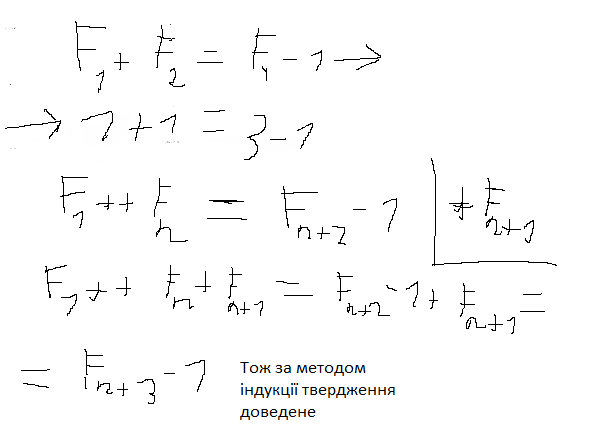 F₁ + F₂ = F₄ - 1 →
→ 1 + 1 = 3 - 1
F₁ + + Fₙ = Fₙ₊₂ - 1 | + Fₙ₊₁
F₁ + + Fₙ + Fₙ₊₁ = Fₙ₊₂ - 1 + Fₙ₊₁ =
= Fₙ₊₃ - 1
Тож за методом
індукції твердження
доведене